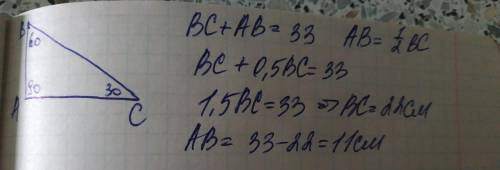 B
60
90
30
A
C
BC+AB=33 AB=½BC
BC+0,5BC=33
1,5BC=33 => BC=22см
AB= 33-22=11см